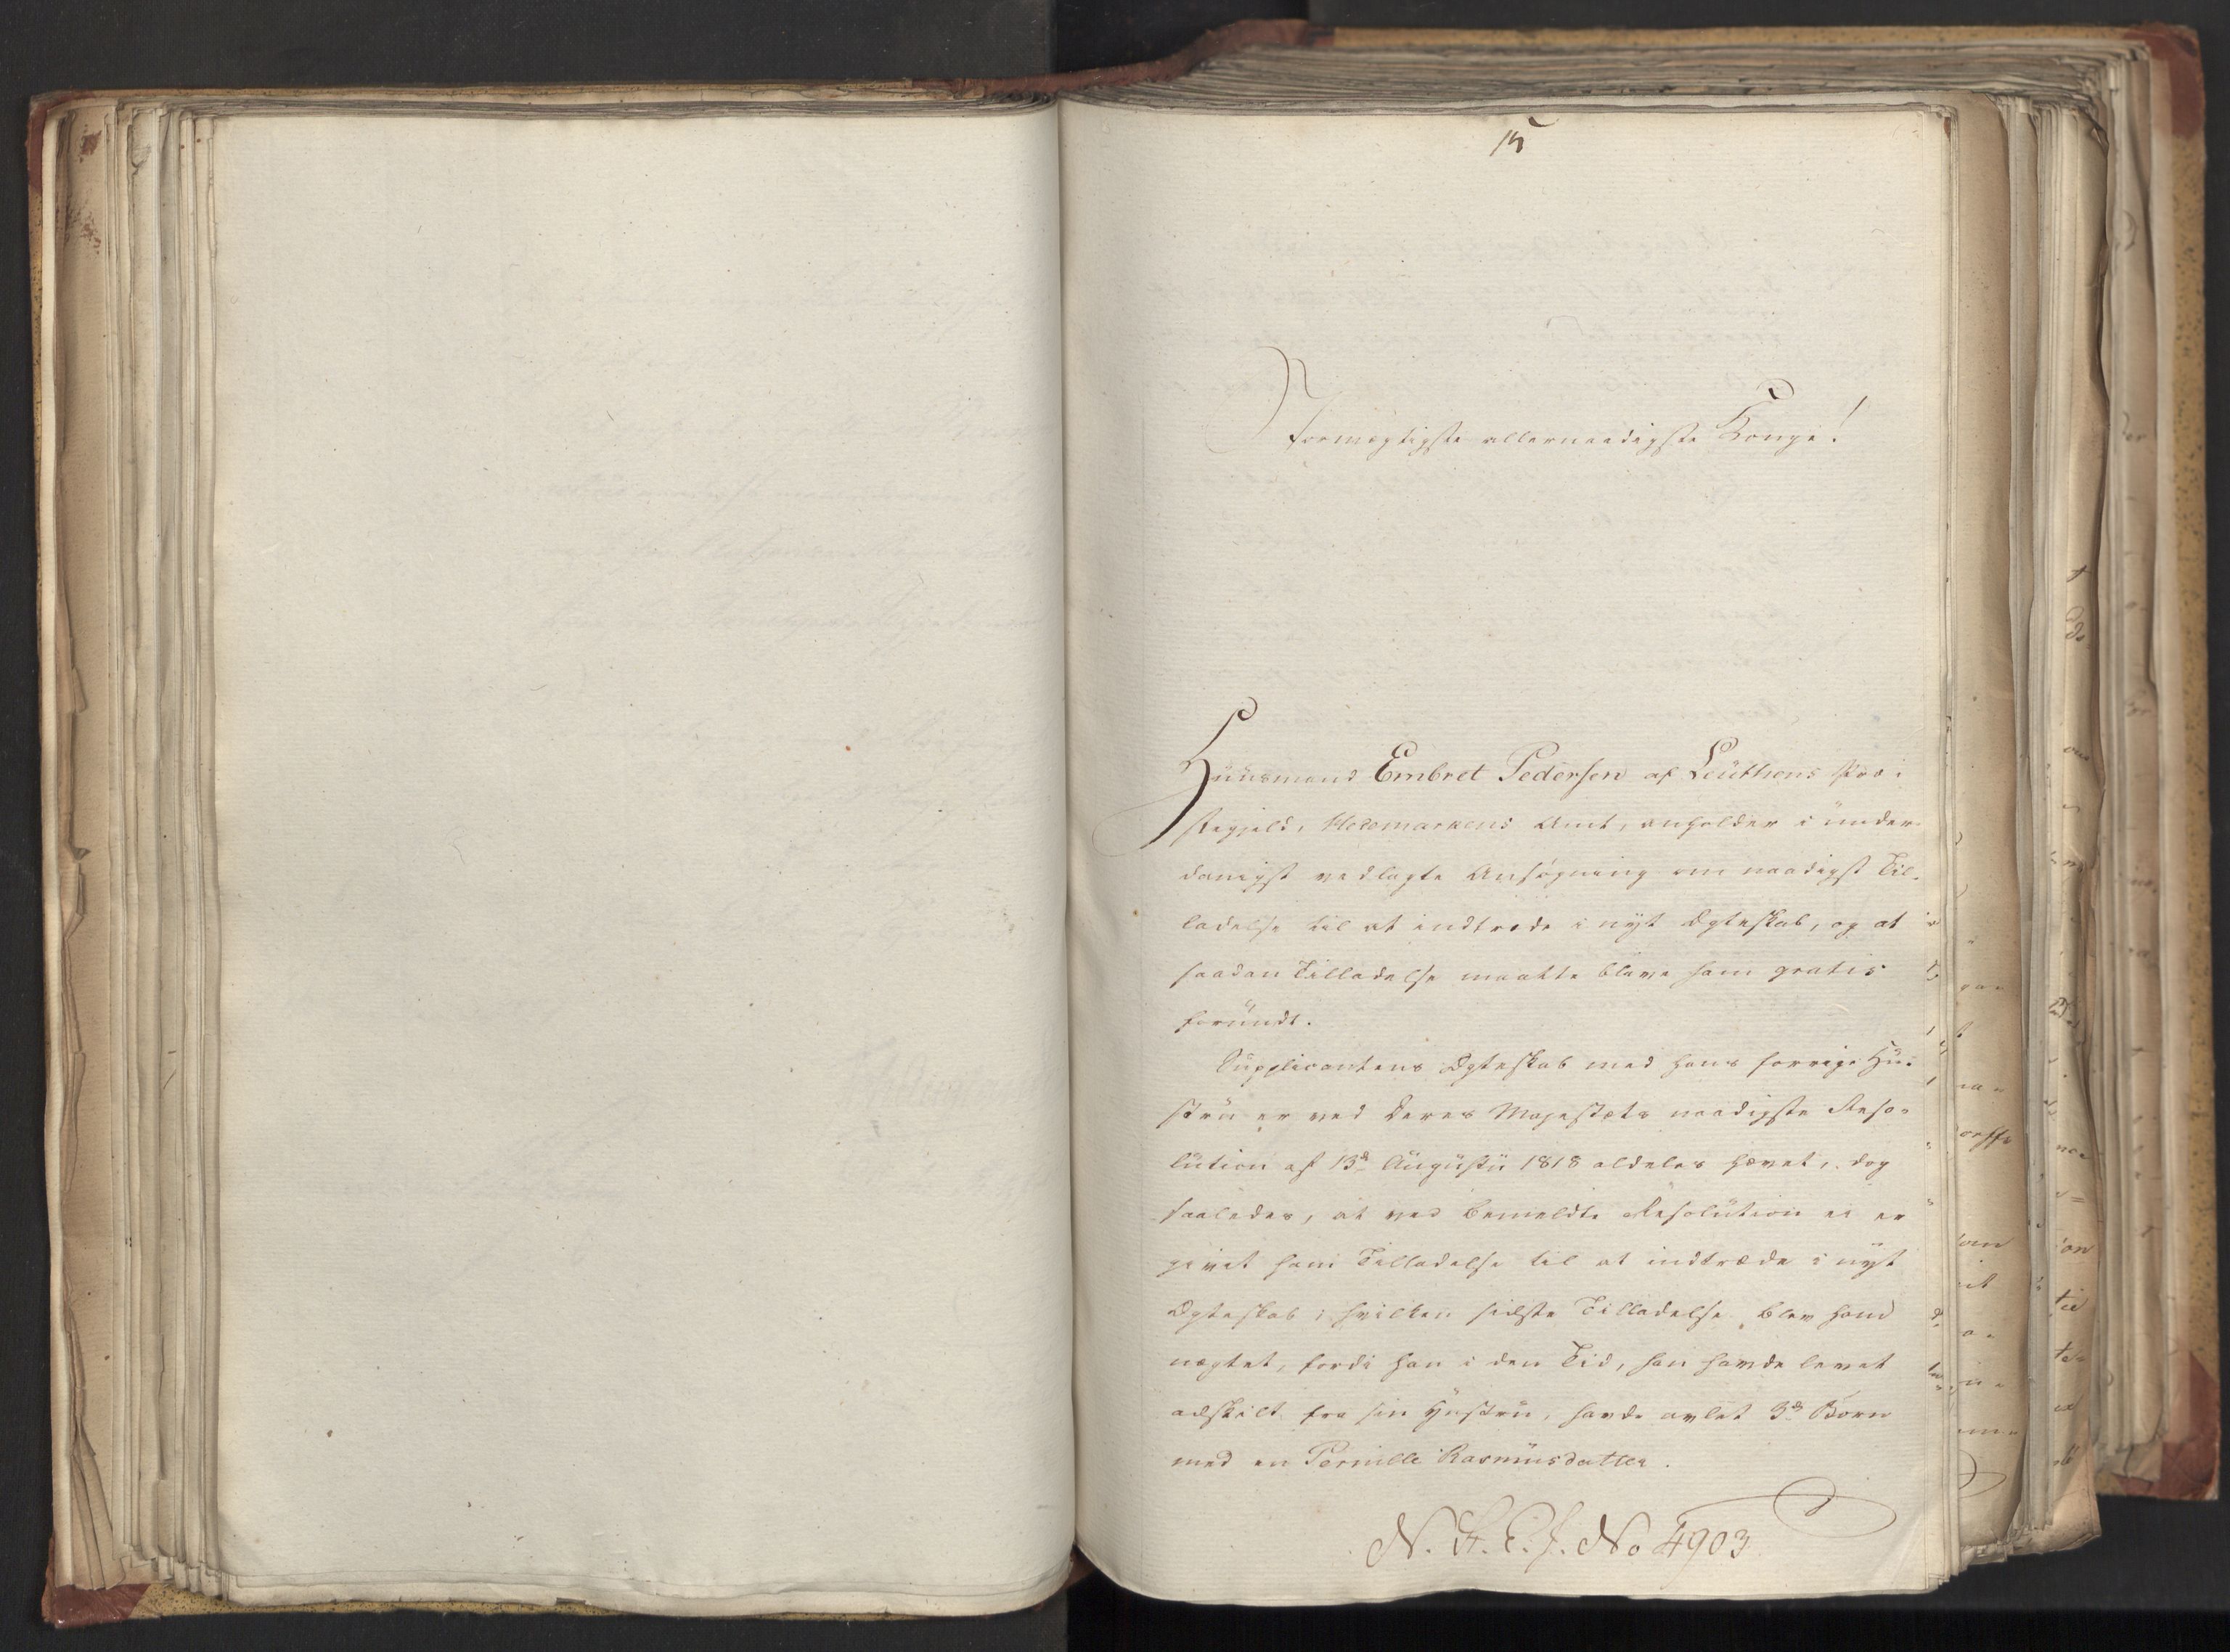 15
Stormægtigste allernaadigste Konge!
Huusmand Embret Pedersen af Leuthens Præ-
stegjeld, Hedemarkens Amt, anholder i under-
danigst vedlagte Ansøgning om naadigst Til-
ladelse til at indtræde i nyt Ægteskab, og at
saadan Tilladelse maatte blive ham gratis
forundt.
Supplicantens Ægteskab med hans forrige Hu-
stru er ved Deres Majestæts naadigste Reso-
lution af 13de Augustii 1818 aldeles hævet, dog
saaledes, at ved bemeldte Resolution ei er
givet ham Tilladelse til at indtræde i nyt
Ægteskab; hvilken sidste Tilladelse blev ham
nægtet, fordi han i den Tid, han havde levet
adskilt fra sin Hustru, havde avlet 3de Børn
med en Pernille Rasmusdatter.
N. H. C. J. No 4903